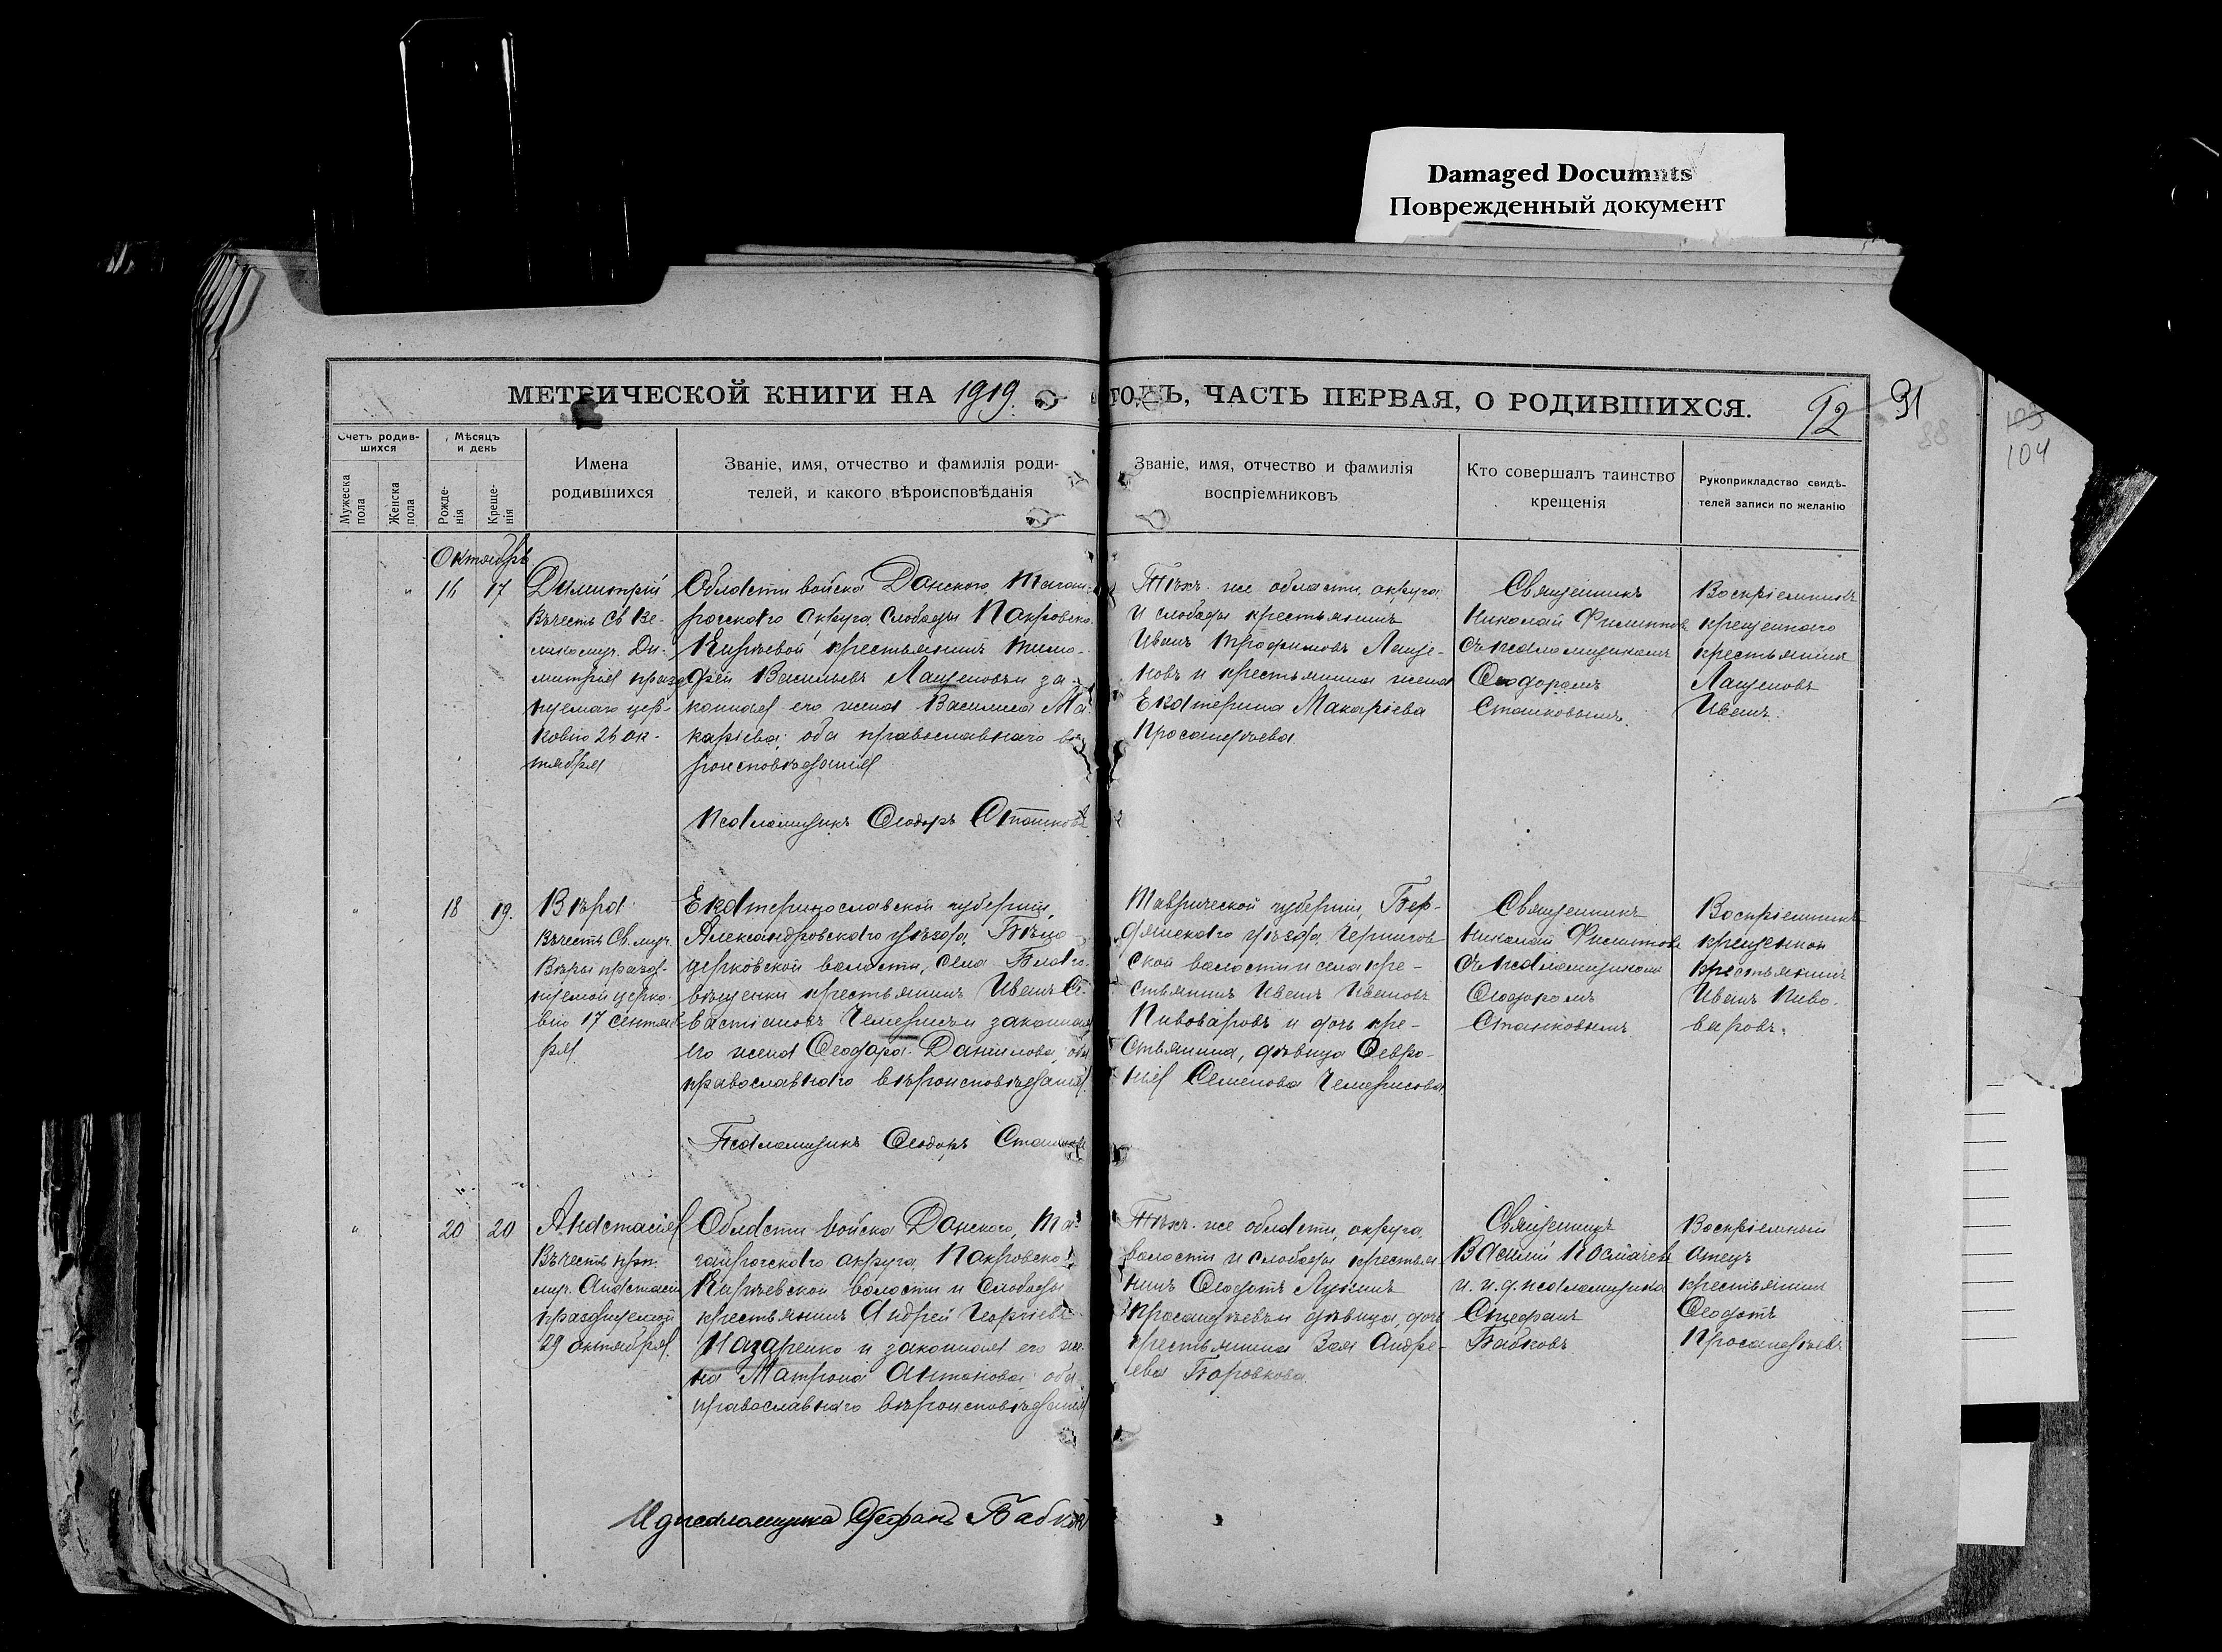 Damaged Documnts
Поврежденный документ
МЕТРИЧЕСКОЙ КНИГИ НА 1919 ГОДЪ, ЧАСТЬ ПЕРВАЯ, О РОДИВШИХСЯ.
92 91
88
103
104
Счетъ родив-
шихся
Мѣсяцъ
и день
Мужеска
пола
Женска
пола
Рожде-
нія
Креще-
нія
Имена
родившихся
Званіе, имя, отчество и фамилія роди-
телей, и какого вѣроисповѣданія
Званіе, имя, отчество и фамилія
воспріемниковъ
Кто совершалъ таинство
крещенія
Рукоприкладство свидѣ-
телей записи по желанію
Октябрь
16 17
Димитрій
Въ честь Св. Ве-
ликомуч. Ди-
митрія празд
нуемаго цер-
ковію 26 ок-
тября
Области войска Донского, Таган-
рогскаго округа Слободы Покровско-
Кирѣевой крестьянинъ Тимо-
фей Васильевъ Лащеновъ и за-
конная его жена Василиса Ма-
каріева, оба православнаго вѣ-
роисповѣданія
Псаломщикъ Ѳеодоръ Сташковъ
Тѣхъ-же области, округа
и слободы крестьянинъ
Иванъ Трофимовъ Лаще-
новъ и крестьянина жена
Екатерина Макаріева
Просандѣева.
Священникъ
Николай Филиппов
съ псаломщикомъ
Ѳеодоромъ
Сташковымъ.
Воспріемникъ
крещеннаго
крестьянинъ
Лащеновъ
Иванъ.
18 19.
Вѣра
Въ честь Св. муч.
Вѣры празд-
нуемой церко-
вію 17 Сентяб
ря.
Екатеринославской губерніи,
Александровскаго уѣзда, Бѣло-
церковской волости, села Благо-
вѣщенки крестьянинъ Иванъ Се-
вастіановъ Чемерисъ и законная
его жена Ѳеодора Данилова, оба
православнаго вѣроисповѣданія.
Псаломщикъ Ѳеодоръ Сташков
Таврической губерніи, Бер-
дянскаго уѣзда Чернигов
ской волости и села кре-
стьянинъ Иванъ Ивановъ
Пивоваровъ и дочь кре-
стьянина, дѣвица Февро-
нія Семенова Чемерисова.
Священникъ
Николай Филиппов
съ псаломщикомъ
Ѳеодоромъ
Сташковымъ
Воспріемникъ
крещенной
крестьянинъ
Иванъ Пиво-
варовъ.
20 20
Анастасія
Въ честь прп.
муч. Анастасіи
празднуемой
29 октября.
Области войска Донского, Та-
ганрогскаго округа, Покровско-
Кирѣевской волости и Слободы
крестьянинъ Андрей Георгіевъ
Назаренко и законная его же-
на Матрона Антонова, оба
православнаго вѣроисповѣданія
И д псаломщика Стефанъ Бабков
Тѣхъ-же области, округа,
волости и слободы крестья-
нинъ Ѳеодотъ Лукинъ
Просандѣевъ и дѣвица, дочь
крестьянина Зоя Андре-
ева Боровкова.
Священникъ
Василій
и. и. д. псаломщика
Стефанъ
Бабковъ
Воспріемный
Отецъ
крестьянинъ
Ѳеодотъ
Просандѣевъ